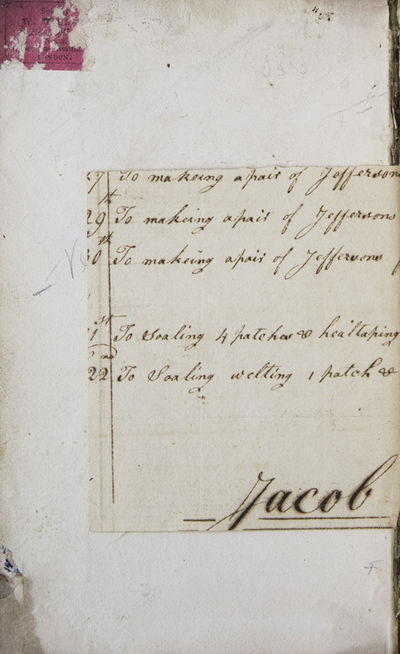 LONDON.
27 To makeing a pair of Jeffersons
th
29 To makeing a pair of Jeffersons
th
30 To makeing a pair of Jeffersons
st
1 To Soaling 4 patches & healtaping
nd
22 To Soaling welting 1 patch &
Jacob